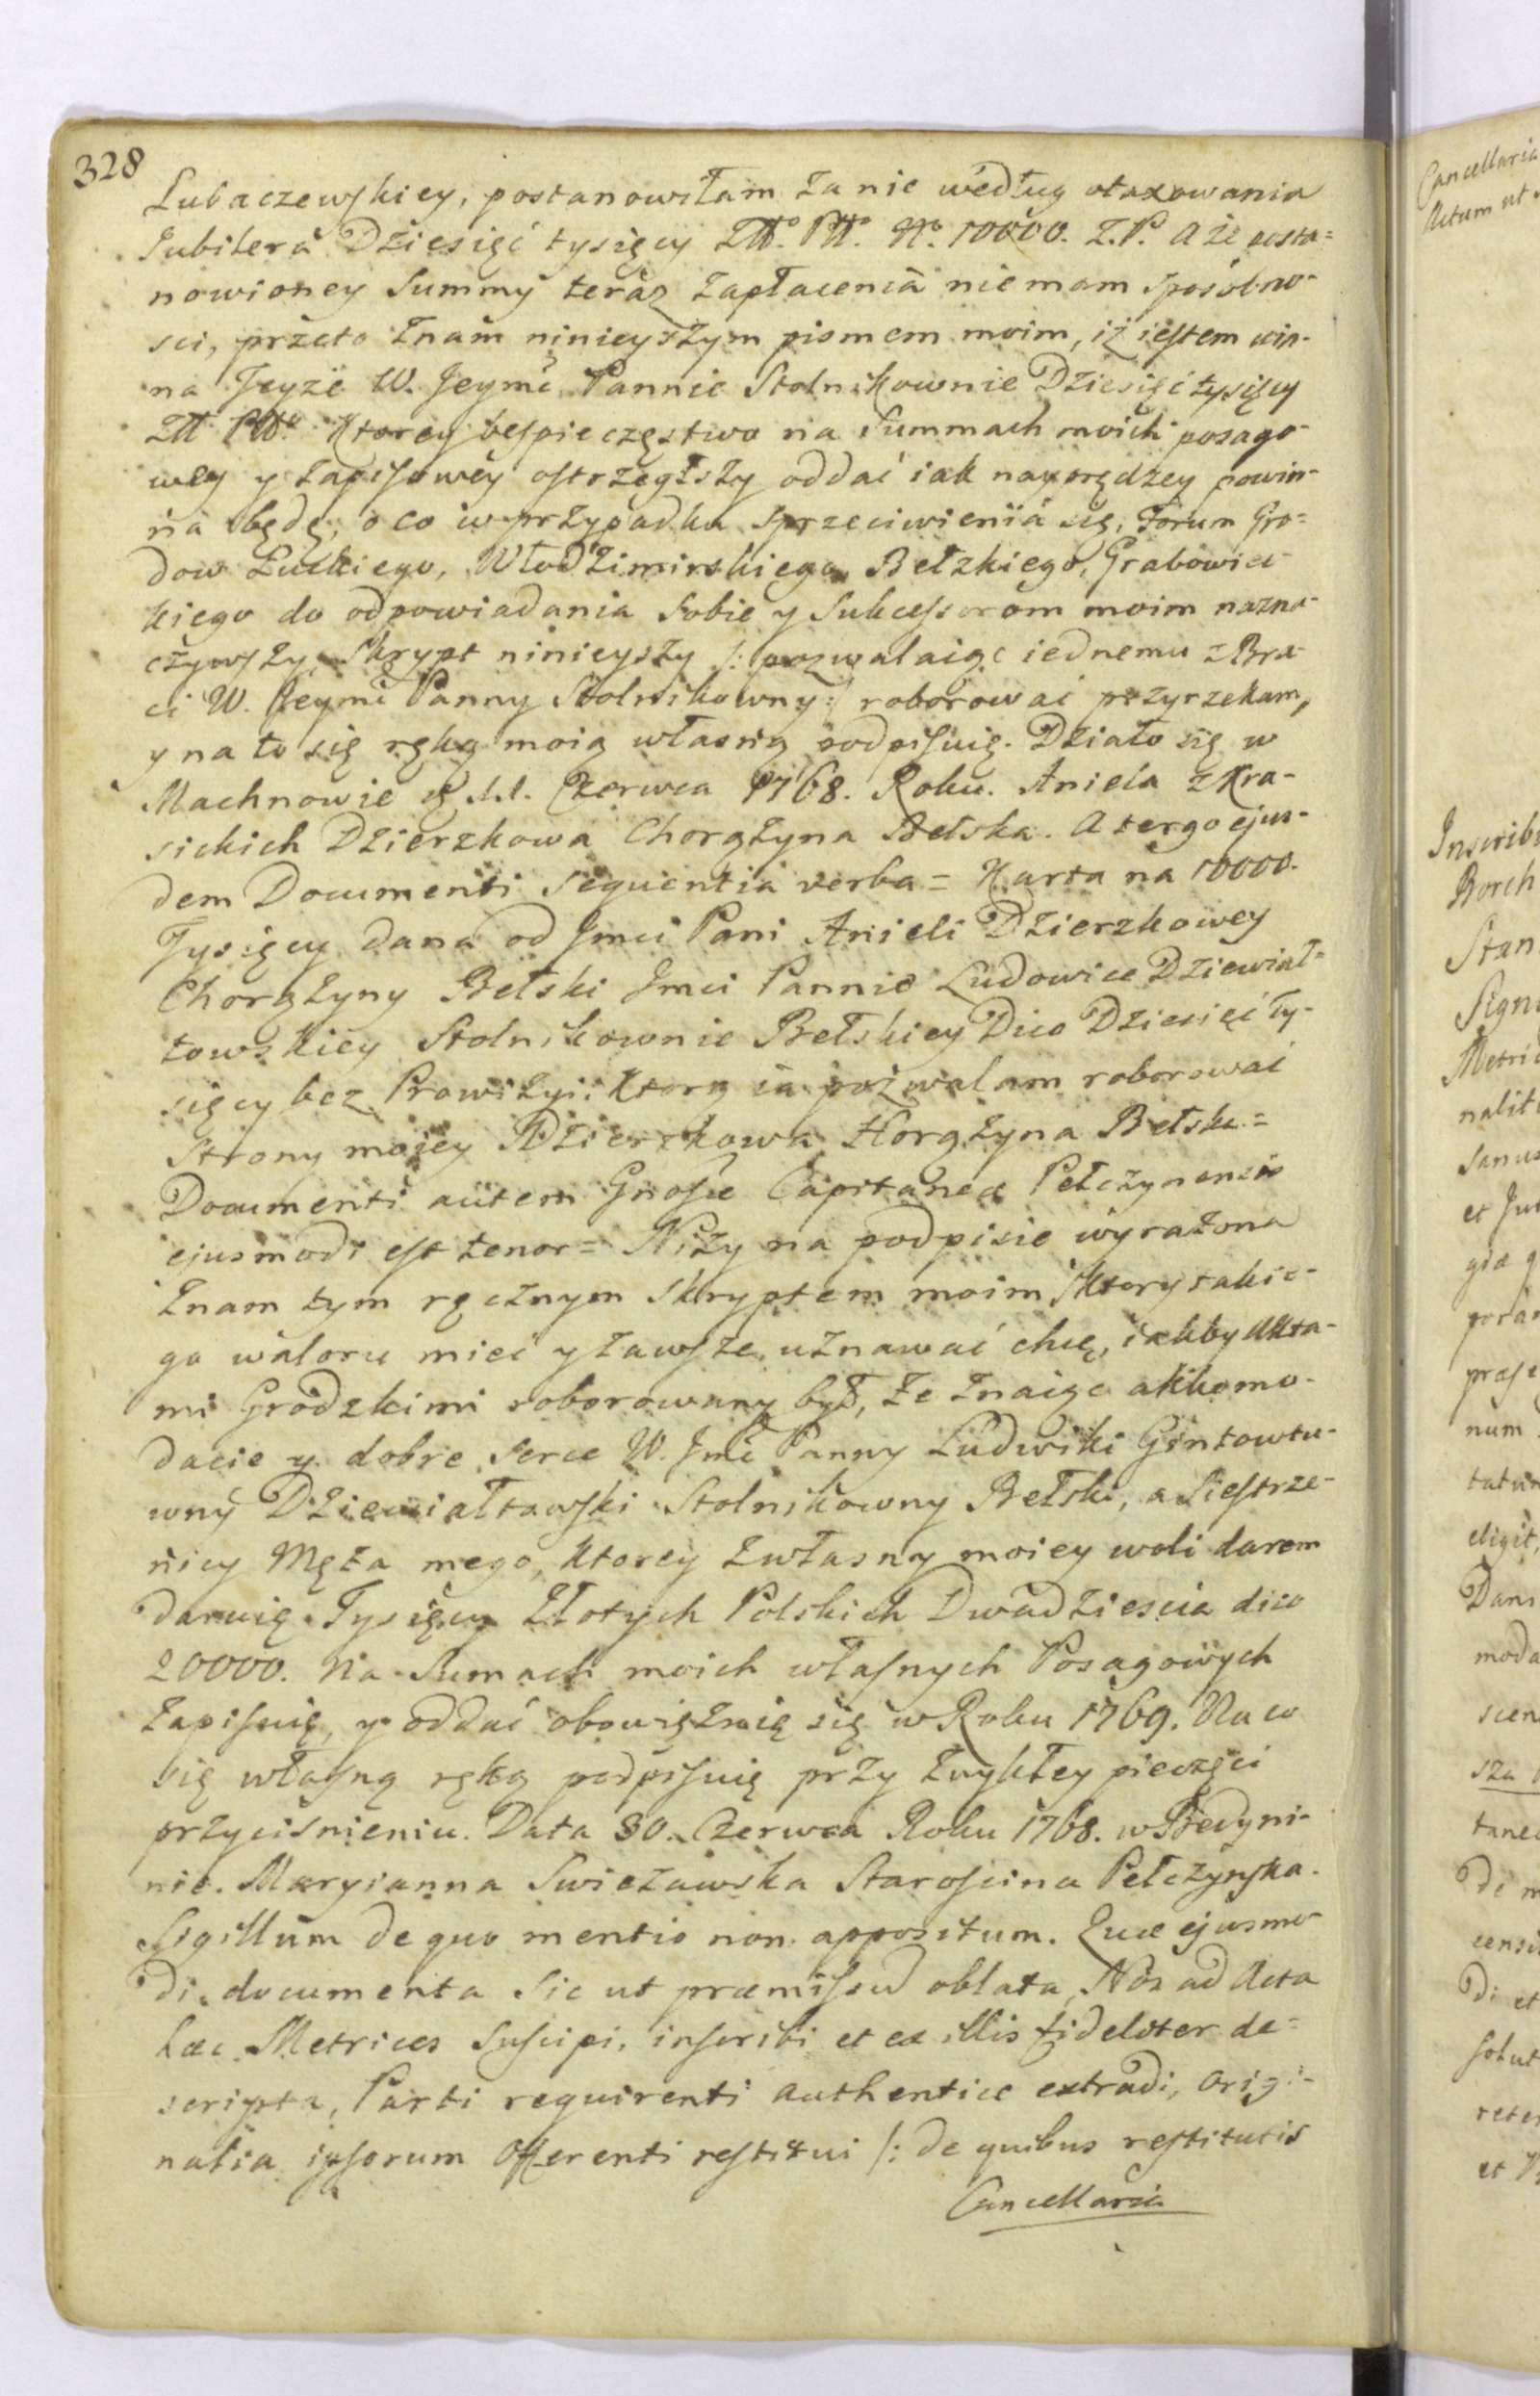 328
Lubaczewskiey, postanowiłam za nie według otaxowania
Jubilera Dziesięć tysięcy Zł. Pl. No. 10000. Z.P. A że posta=
nowioney Summy teraz zapłacenia nie mam sposobno-
sci, przeto znam ninieyszym pismem moim, iż iestem win-
na Jeyże W. Jeymć Pannie Stolnikownie Dziesięć tysięcy
Zł. Pl. Ktorey bespieczęstwo na Summach moich posago-
wey y zapisowey ostrzegłszy oddać iak nayprędzey powin-
na będę, o co w przypadku sprzeciwienia się, Forum Gro=
dow Łuckiego, Włodzimirskiego, Bełzkiego, Grabowiec-
kiego do odpowiadania sobie y Sukcessorom moim nazna-
czywszy, Skrypt ninieyszy /: pozwalaiąc iednemu z Bra-
ci W. Jeymć Panny Stolnikowny :/ roborować przyrzekam,
y na to się ręką moią własną podpisuię. Działo się w
Machnowie d. 11. Czerwca 1768. Roku. Aniela z Kra-
sickich Dzierzkowa Chorążyna Bełska. A tergo ejus-
dem Documenti sequentia verba = Karta na 10000.
Tysięcy dana od Jmci Pani Anieli Dzierzkowey
Chorążyny Bełski Jmci Pannie Ludowice Dziewiał=
towskiey Stolnikownie Bełskiey Dico Dziesięć Ty-
sięcy bez Prowizyi: Ktorą ia pozwalam roborować
Strony moiey ADzierzkowa Horążyna Bełska =
Documenti autem Gnosæ Capitaneæ Pełczynensis
ejusmodi est tenor = Niży na podpisie wyrażona
Znam tym ręcznym skryptem moim Ktory takie-
go waloru mieć y zawsze uznawać chcę, iakby Akta-
mi Grodzkimi roborowany był, że znaiąc akkomo-
dacie y dobre serce W. Jmć Panny Ludwiki Gintowtu-
wny Dziewiałtowski Stolnikowny Bełski, a Siestrze-
nicy Męża mego, Ktorey z własny moiey woli darem
daruię Tysięcy Złotych Polskich Dwadziescia dico
20000. Na Sumach moich własnych Posagowych
zapisuię, y oddać obowięzuię się w Roku 1769. Na co
się własną ręką podpisuię przy zwykłey pieczęci
przycisnieniu. Data 30. Czerwca Roku 1768. w
nie. Maryianna Swiezawska Staroscina Pełczyńska.
Sigillum de quo mentio non appositum. Quæ ejusmo-
di documenta sic ut præmissum oblata, Nos ad Acta
hæc Metrices suscipi, inscribi et ex illis fideliter de=
scripta, Parti requirenti authentice extradi, Origi-
nalia ipsorum Offerenti restitui /: de quibus restitutis
Cancellaria
Cancellaria
Actum ut
Borch
Stan
Sign
Metri
nalit
sanus
et Jur
giæ
num
eligit,
Dans
moda
scen
sza
tane
De
censi
Di et
solut
et